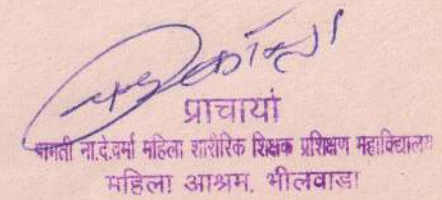 प्राचार्या
ना.दे.वर्मा महिला शारीरिक शिक्षक प्रशिक्षण महाविद्यालय
महिला आश्रम, भीलवाडा